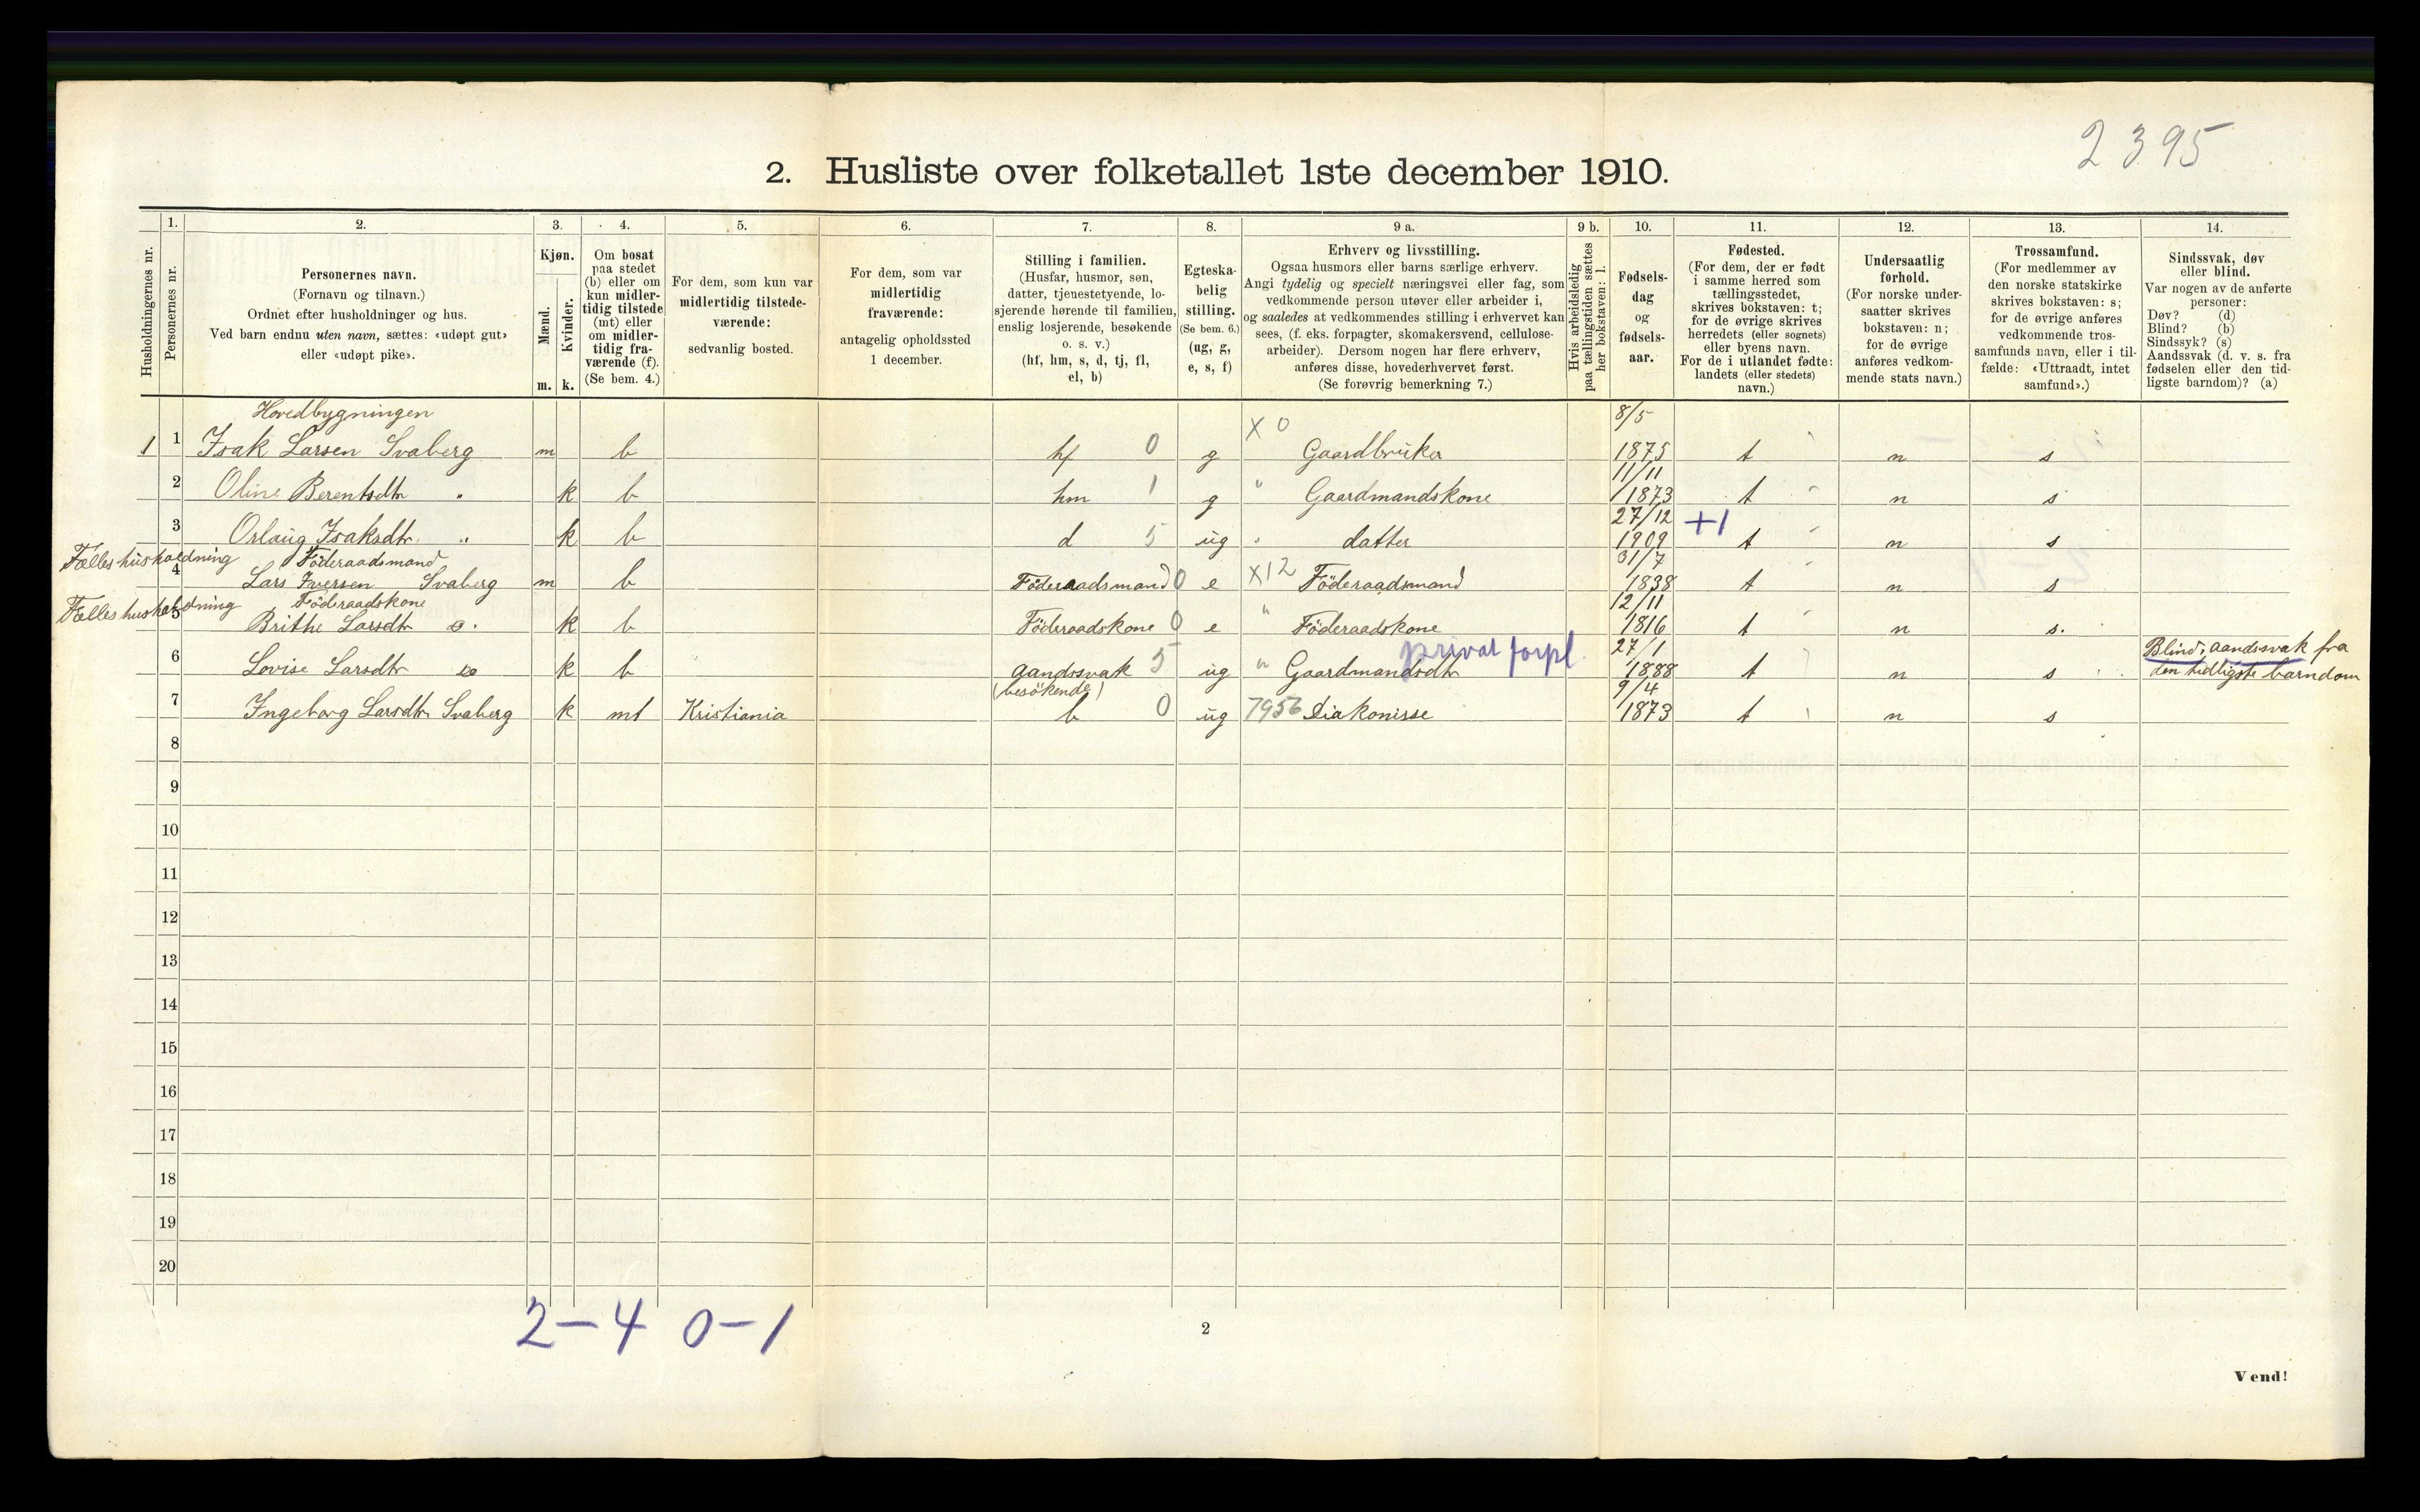 2395
2. Husliste over folketallet 1ste december 1910.
Husholdningernes nr.
1.
Personernes nr.
2.
Personernes navn.
(Fornavn og tilnavn.)
Ordnet efter husholdninger og hus.
Ved barn endnu uten navn, sættes: «udøpt gut»
eller «udøpt pike».
3.
Kjøn.
Mænd.
Kvinder.
m. k.
4.
Om bosat
paa stedet
(b) eller om
kun midler-
tidig tilstede
(mt) eller
om midler-
tidig fra-
værende (f).
(Se bem. 4.)
5.
For dem, som kun var
midlertidig tilstede-
værende:
sedvanlig bosted.
6.
For dem, som var
midlertidig
fraværende:
antagelig opholdssted
1 december.
7.
Stilling i familien.
(Husfar, husmor, søn,
datter, tjenestetyende, lo-
sjerende hørende til familien,
enslig losjerende, besøkende
o. s. v.)
(hf, hm, s, d, tj, fl,
el, b)
8.
Egteska-
belig
stilling.
(Se bem. 6.)
(ug, g,
e, s, f)
9 a.
Erhverv og livsstilling.
Ogsaa husmors eller barns særlige erhverv.
Angi tydelig og specielt næringsvei eller fag, som
vedkommende person utøver eller arbeider i,
og saaledes at vedkommendes stilling i erhvervet kan
sees, (f. eks. forpagter, skomakersvend, cellulose-
arbeider). Dersom nogen har flere erhverv,
anføres disse, hovederhvervet først.
(Se forøvrig bemerkning 7.)
9 b.
Hvis arbeidsledig
paa tællingstiden sættes
her bokstaven: l.
10.
Fødsels-
dag
og
fødsels-
aar.
11.
Fødested.
(For dem, der er født
i samme herred som
tællingsstedet,
skrives bokstaven: t;
for de øvrige skrives
herredets (eller sognets)
eller byens navn.
For de i utlandet fødte:
landets (eller stedets)
navn.)
12.
Undersaatlig
forhold.
(For norske under-
saatter skrives
bokstaven: n;
for de øvrige
anføres vedkom-
mende stats navn.)
13.
Trossamfund.
(For medlemmer av
den norske statskirke
skrives bokstaven: s;
for de øvrige anføres
vedkommende tros-
samfunds navn, eller i til-
fælde: «Uttraadt, intet
samfund».)
14.
Sindssvak, døv
eller blind.
Var nogen av de anførte
personer:
Døv? (d)
Blind? (b)
Sindssyk? (s)
Aandssvak (d. v. s. fra
fødselen eller den tid-
ligste barndom)? (a)
Hovedbygningen
1 1 Isak Larsen Svaberg m b hf 0 g X 0 Gaardbruker 8/5 1875 t n s
2 Oline Berentsdtr " k b hm 1 g " Gaardmandskone 11/11 1873 t n s
3 Orlaug Isaksdtr. " k b d 5 ug " datter 27/12 1909 +1 t n s
Fælles husholdning Föderaadsmand
4 Lars Iversen Svaberg m b Föderaadsmand 0 e X12 Föderaadsmand 31/7 1838 t n s
Fælles husholdning Föderaadskone
5 Brithe Larsdtr do. k b Föderaadskone 0 e " Föderaadskone 12/11 1816 t n s.
6 Lovise Larsdtr do k b aandssvak 5 ug " Gaardmandsdtr privat forpl. 27/1 1888 t n s Blind, aandssvak fra
den tidligste barndom
(besökende)
7 Ingeborg Larsdtr Svaberg k mt Kristiania b 0 ug 7956 Diakonisse 9/4 1873 t n s
8
9
10
11
12
13
14
15
16
17
18
19
20
2-4 0-1
2
Vend!